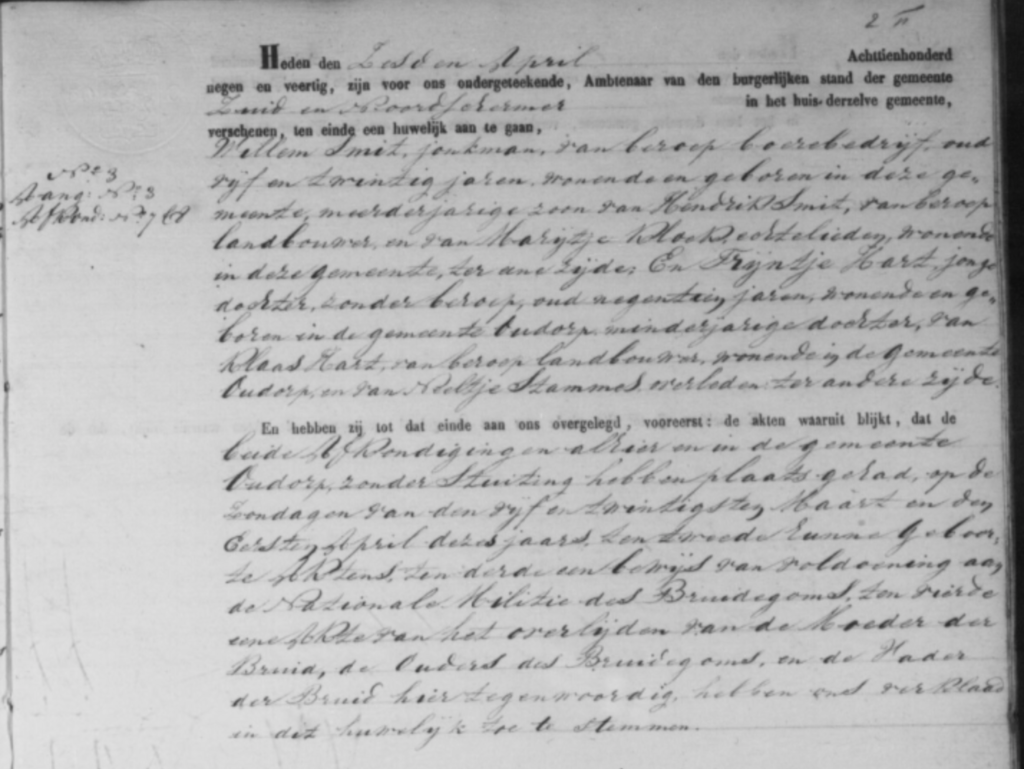 Heden den Zesden April Achttienhonderd
negen en veertig, zijn voor ons ondergeteekende, Ambtenaar van den burgerlijken stand der gemeente
Zuid en Noordschermer in het huis derzelve gemeente,
verschenen, ten einde een huwelijk aan te gaan,
Willem Smit, jonkman, van beroep boerebedrijf, oud
vijf en twintig jaren, wonende en geboren in deze ge-
meente, meerderjarige zoon van Hendrik Smit, van beroep
landbouwer, en van Marijtje Kloek, echtelieden, wonende
in deze gemeente, ter eene zijde; En Trijntje Hart, jonge
dochter, zonder beroep, oud negentien jaren, wonende en ge-
boren in de gemeente Oudorp, minderjarige dochter, van
Klaas Hart, van beroep landbouwer, wonende in de Gemeente
Oudorp, en van Neeltje Stammes, overleden, ter andere zijde.
En hebben zij tot dat einde aan ons overgelegd, vooreerst: de akten waaruit blijkt, dat de
beide Afkondigingen alhier en in de gemeente
Oudorp, zonder Stuiting hebben plaats gehad, op de
Zondagen van den vijf en twintigsten Maart en den
Eersten April dezes jaars, ten tweede hunne Geboor-
te Aktens, ten derde een bewijs van voldoening aan
de Nationale Militie des Bruidegoms, ten vierde
eene Akte van het overlijden van de Moeder der
Bruid, de Ouders des Bruidegoms, en de Vader
der Bruid hier tegenwoordig, hebben ons verklaard
in dit huwelijk toe te Stemmen.
No 3
Aang: No 3
Afkond: No 7